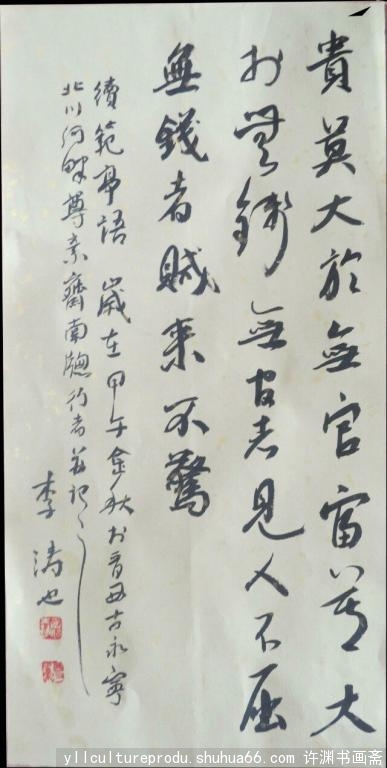 貴莫大於無官富莫大
於無錢無官者見人不屈
無錢者賊來不驚
續範亭語 歲在甲午金秋於晉西古永寧
北川河畔尊素齋南牕行者並記之
李濤也
yllcultureprodu.shuhua66.com 许渊书画斋